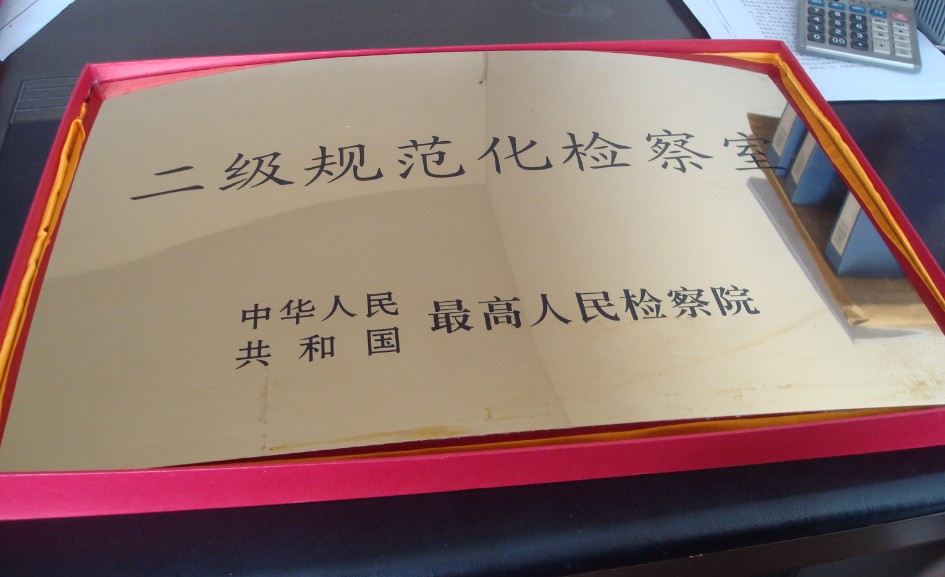 二级规范化检察室
中华人民
共和国
最高人民检察院